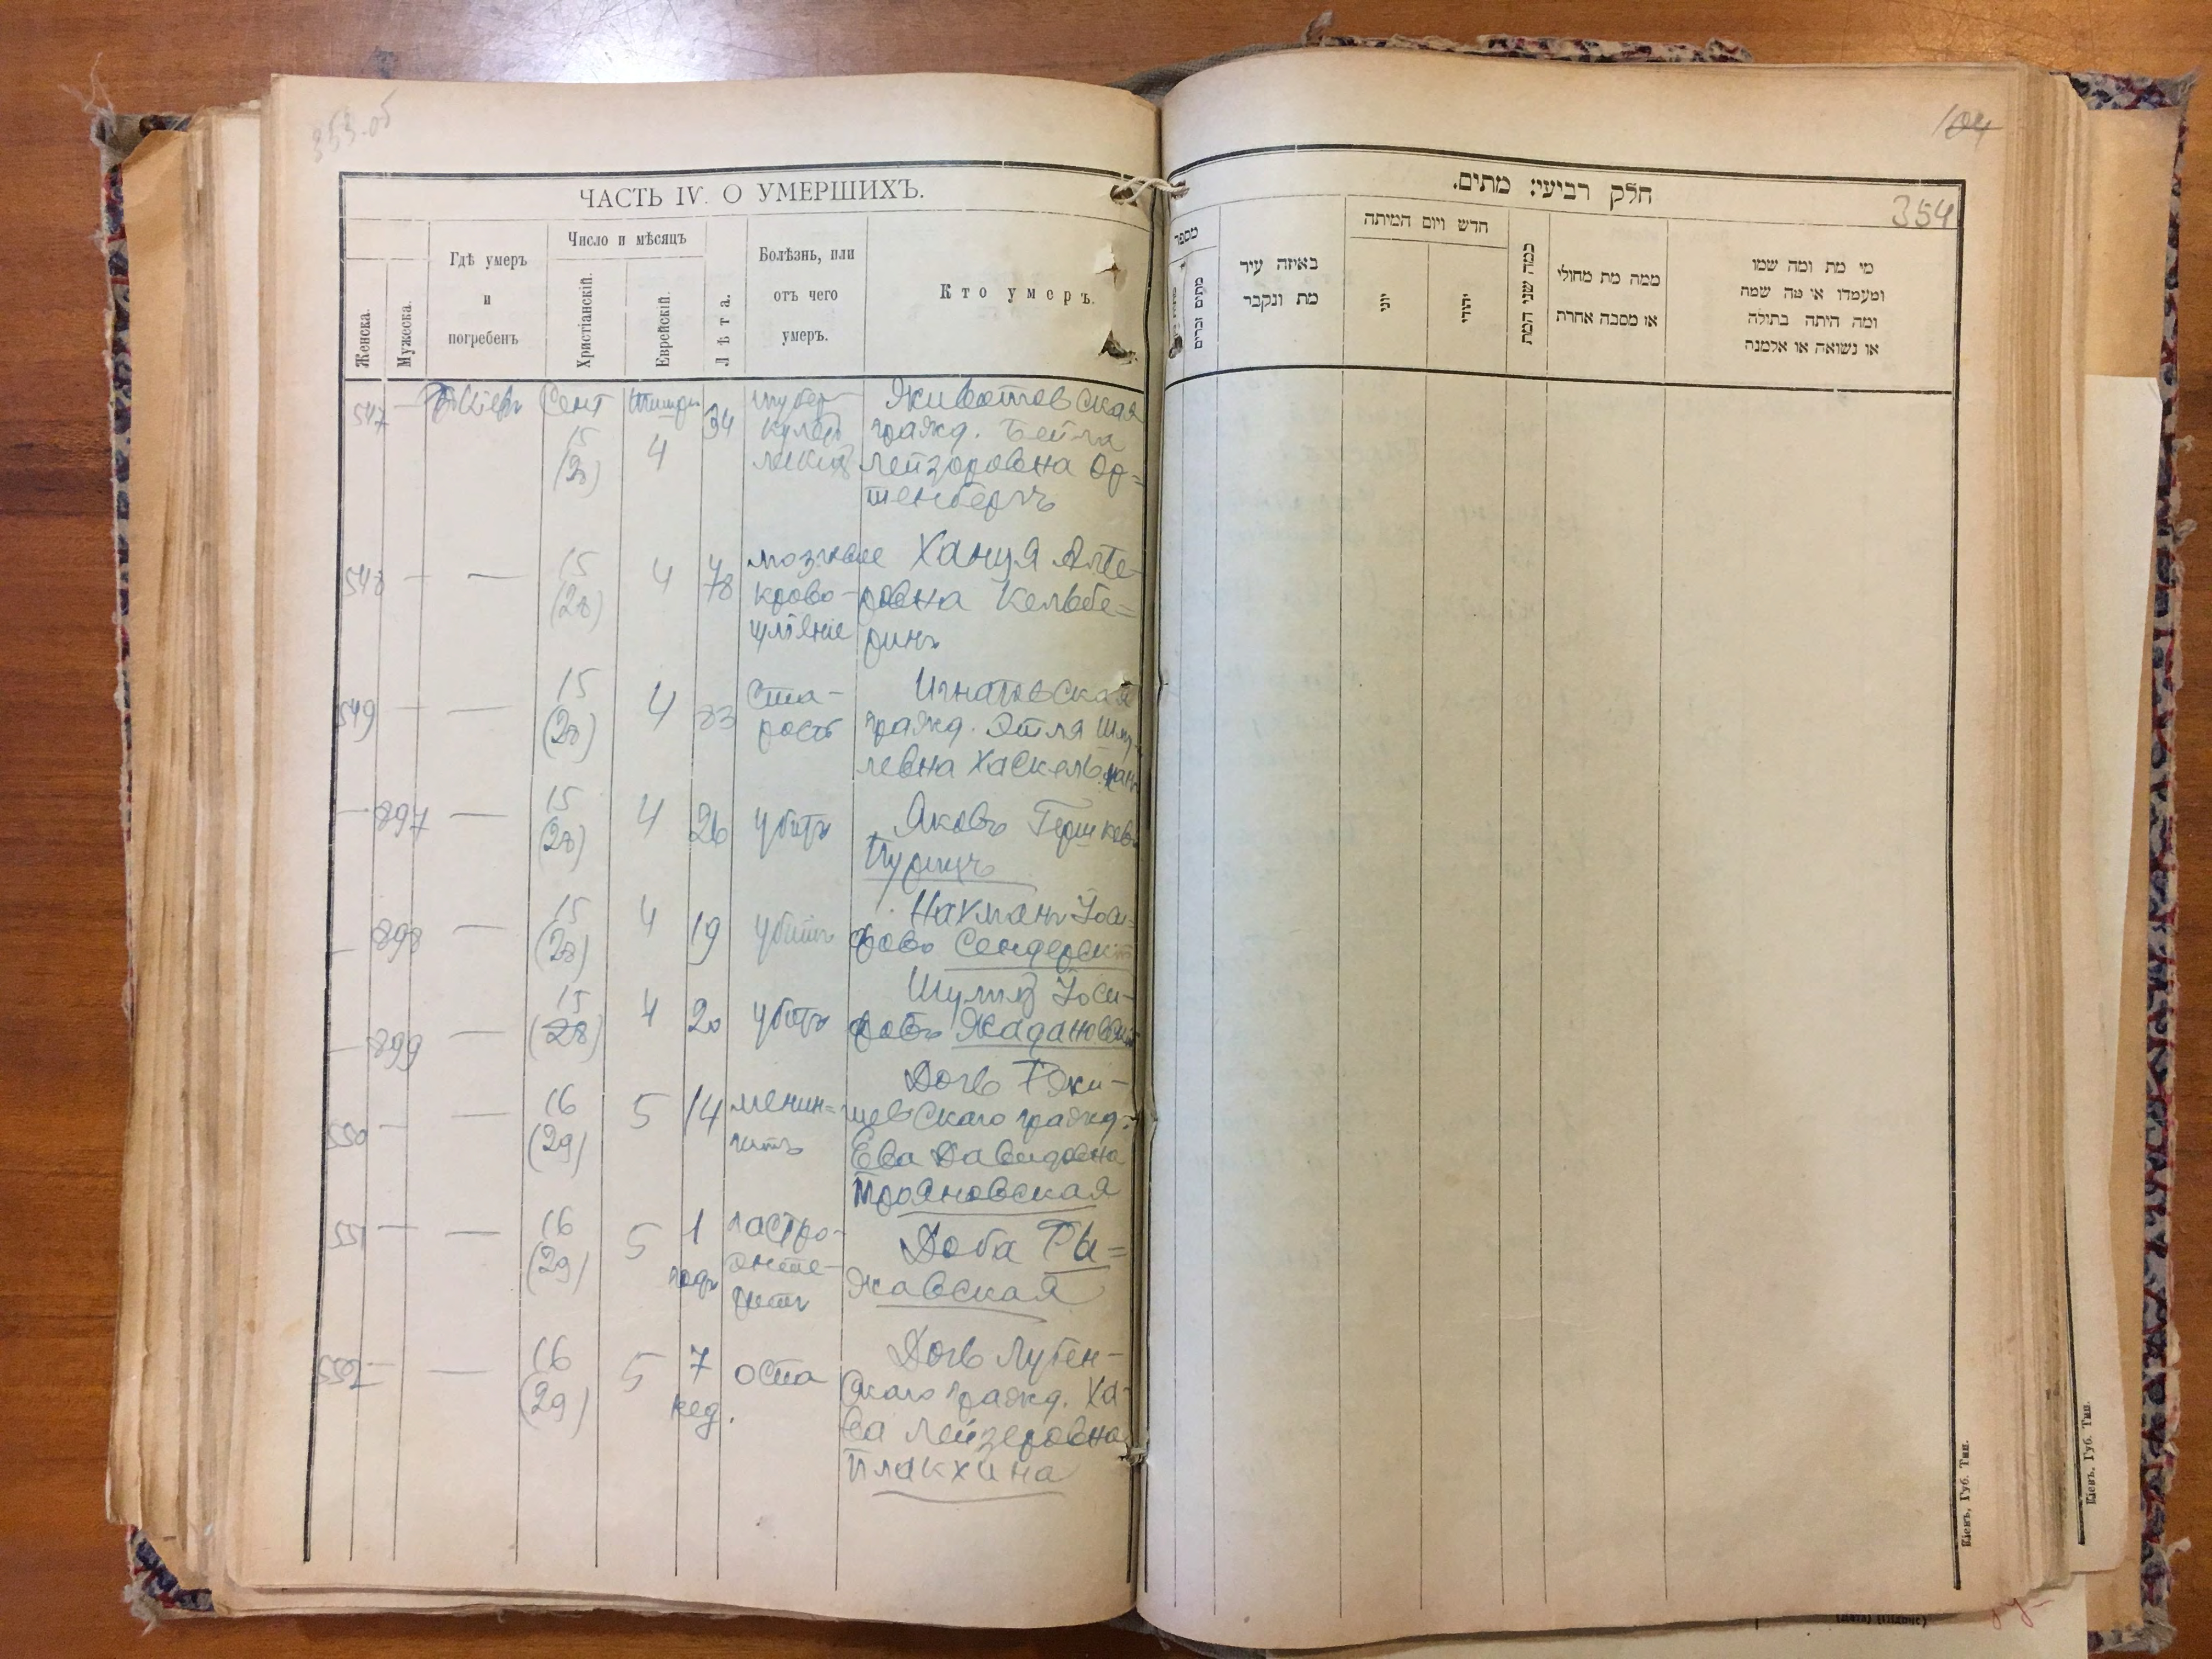 353 об
ЧАСТЬ IV. О УМЕРШИХЪ.
Женска.
Мужеска.
Гдѣ умеръ
и
погребенъ
Число и мѣсяцъ
Христіанскій.
Еврейскій.
Лѣта.
Болѣзнь, или
отъ чего
умеръ.
Кто умеръ.
547 — Кіевъ Сент 15 (28) Тишри 4 34
тубер-
кулез
легких
Животовская
гражд. Бейла
Лейзоровна Ор=
тенбергъ
548 — — 15 (28) 4 78
мозговое
крово-
Ханця Алте-
ровна Кельбе=
ринъ
549 — — 15 (28) 4 83
Ста-
рость
Игнатовская
гражд. Этля Шму-
левна Хаскельман
— 897 — 15 (28) 4 26 убитъ
Яковъ Гершков
Пурицъ
— 898 — 15 (28) 4 19 убитъ
Нахманъ Іоси=
фовъ Сендерскі
— 899 — 15 (28) 4 20 убитъ
Шулим Іоси-
фовъ Жадановскі
550 — — 16 (29) 5 14
менин=
гитъ
Дочь Ржи-
щевскаго гражд.
Ева Давидовна
Трояновская
551 — — 16 (29) 5 1 годъ
гастро-
энте-
ритъ
Доба Ры=
жавская
552 — — 16 (29) 5 7 нед. оспа
Дочь Лубен-
скаго гражд. Ха-
ва Лейзеровна
Плакхина
104
354
חלק רביעי: מתים.
מספר
מתים זכרים
באיזה עיר
מת ונקבר
חדש ויום המיתה
יוני
יהודי
כמה שני המת
ממה מת מחולי
או מסבה אחרת
מי מת ומה שמו
ומעמדו או מה שמה
ומה היתה בתולה
או נשואה או אלמנה
Кіевъ, Губ. Тип.
Кіевъ, Губ. Тип.